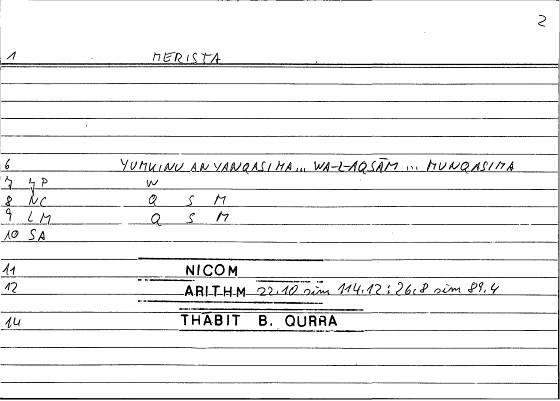 2
1 MERISTA
6 YUMKINU AN YANQASIMA... WA-L-AQSĀM ... MUNQASIMA
7 7P W
8 NC Q S M
9 LM Q S M
10 SA
11 NICOM
12 ARITHM 22.10 sim 114.12; 26.8 sim 89.4
14 THABIT B. QURRA